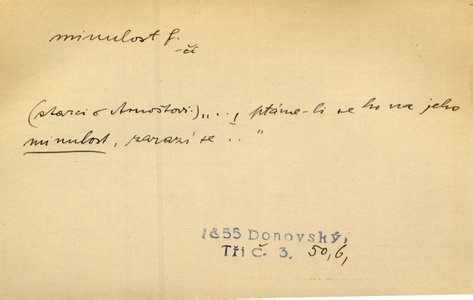 minulost f.
-či
(starci o Arnoštovi:) „..., ptáme-li se ho na jeho
minulost, zarazí se ..."
1855 Donovský,
Tři č. 3. 50,6,